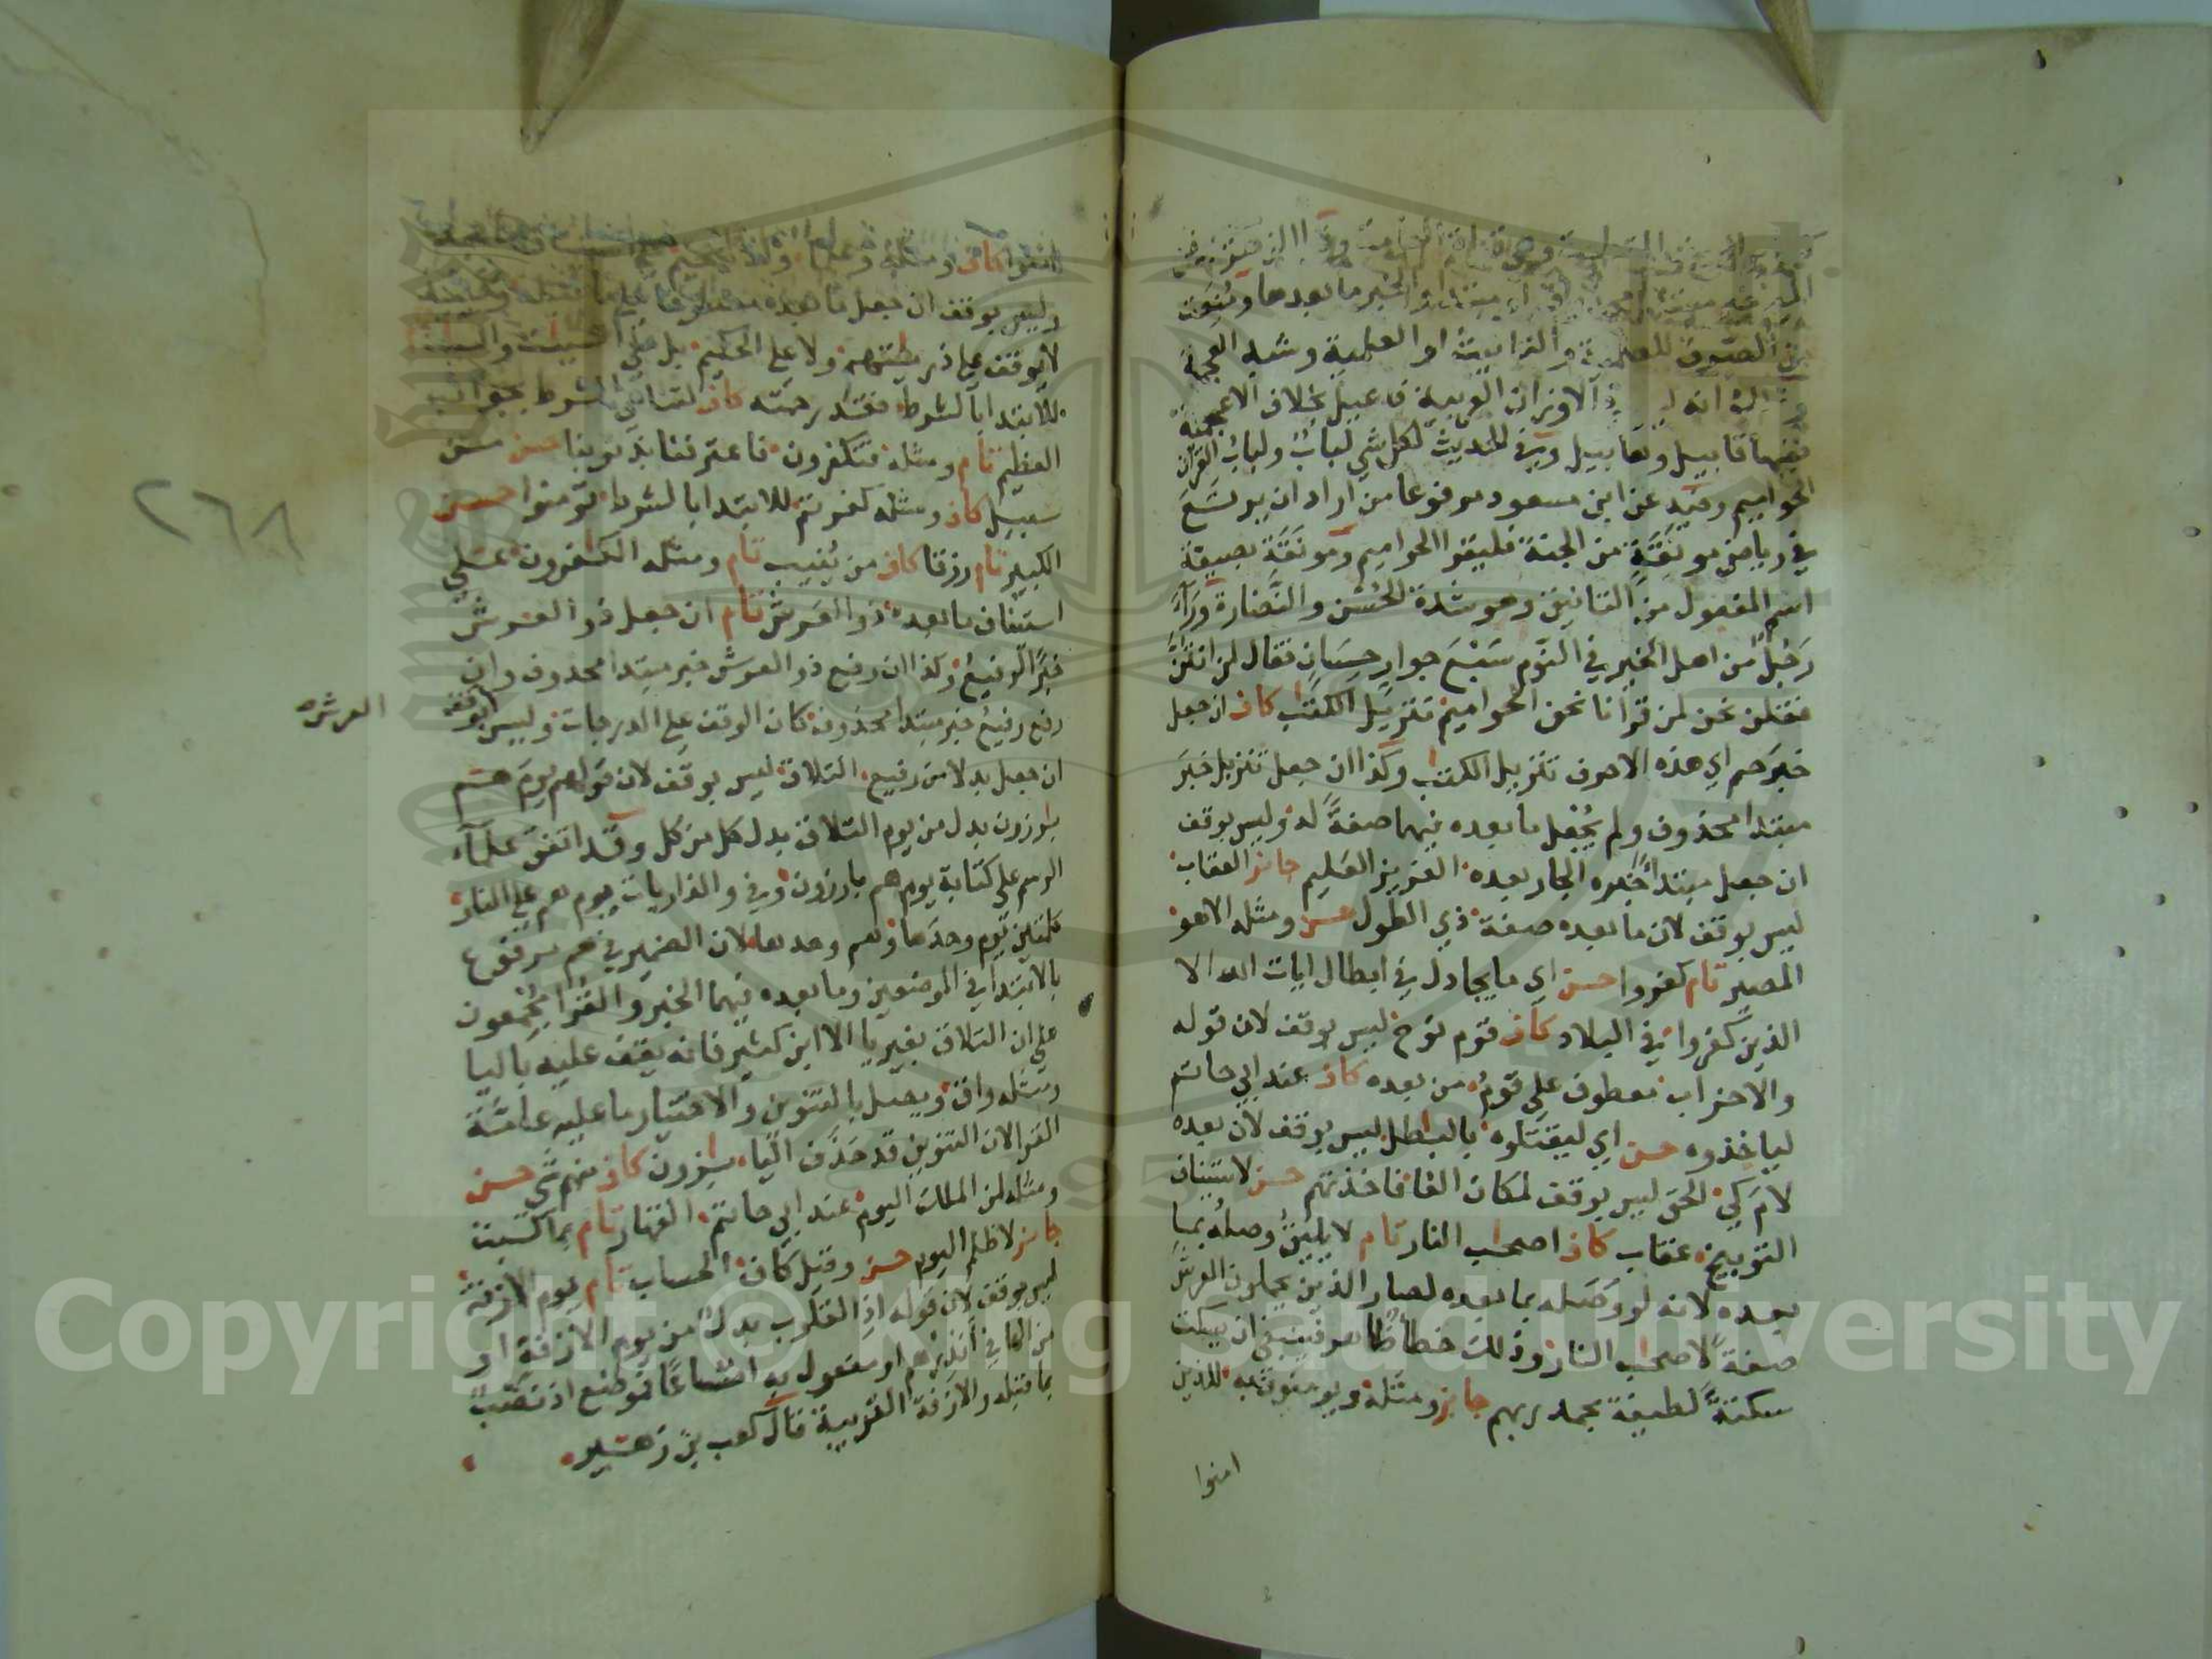 مبتدا والخبر ما بعدها ومنعت
من الصرف للعلمية والتانيث او العلمية وشبه العجمة
الاوزان العربية فاعيل بخلاف الاعجمية
ففيها قابيل وهابيل وفي الحديث لكل شي لباب ولباب القران
الحواميم وفيه عن ابن مسعود مرفوعا من اراد ان يرتع
في رياض مونقة من الجنة فليقرا الحواميم ومونقة بصيغة
اسم المفعول من التانيق وهو شدة الحسن والنضارة وراى
رجلا من اهل الخير في النوم سبع جوار حسان فقال لمن انتن
فقلن نحن لمن قرانا نحن الحواميم تنزيل الكتب كاف ان جعل
خبر حم اي هذه الاحرف تنزيل الكتب وكذا ان جعل تنزيل خبر
مبتدا محذوف ولم يجعل ما بعده فيهما صفة له وليس بوقف
ان جعل مبتدا خبره الجار بعده العزيز العليم جائز العقاب
ليس بوقف لان ما بعده صفة ذي الطول حسن ومثله الا هو
المصير تام كفروا حسن اي ما يجادل في ابطال ايات الله الا
الذين كفروا في البلاد كاف قوم نوح ليس بوقف لان قوله
والاحزاب معطوف على قوم من بعده كاف عند ابي حاتم
لياخذوه حسن اي ليقتلوه بالبطل ليس بوقف لان بعده
لام كي الحق ليس بوقف لمكان الفا فاخذتهم حسن لاستيناف
التوبيخ عقاب كاف اصحب النار تام لا يليق وصله بما
بعده لانه لو وصله بما بعده لصار الذين يحملون العرش
صفة لاصحب النار وذلك خطا ظاهر فينبغي ان يسكت
سكتة لطيفة بحمد ربهم جايز ومثله ويومنون به للذين
امنوا
امنوا كاف ومثله وعلما
وليس بوقف ان جعل ما بعده معطوفا على ما قبله
لا يوقف على ذريتهم ولا على الحكيم بل على السيات
للابتدا بالشرط فقد رحمته كاف لتناهي الشرط بجوابه
العظيم تام ومثله فتكفرون فاعترفنا بذنوبنا حسن من
سبيل كاف ومثله كفرتم للابتدا بالشرط تومنوا حسن
الكبير تام رزقا كاف من ينيب تام ومثله الكفرون على
استيناف ما بعده ذو العرش تام ان جعل ذو العرش
خبرا لرفيع وكذا ان رفع ذو العرش خبر مبتدا محذوف وان
رفع رفيع خبر مبتدا محذوف كان الوقف على الدرجات وليس بوقف
العرش
ان جعل بدلا من رفيع التلاق ليس بوقف لان قوله يوم هم
برزون بدل من يوم التلاق بدل كل من كل وقد اتفق علماء
الرسم على كتابة يوم هم بارزون وفي والذاريات يوم هم على النار
كلمتين يوم وحدها وهم وحدها لان الضمير في هم مرفوع
بالابتدا في الموضعين وما بعده فيهما الخبر والقرا مجمعون
على ان التلاق بغير يا الا ابن كثير فانه يقف عليه باليا
ومثله واق ويصل بالتنوين والاختيار ما عليه عامة
القرا لان التنوين قد حذف الياء برزون كاف منهم شي حسن
ومثله لمن الملك اليوم عند ابي حاتم القهار تام بما كسبت
جائز لا ظلم اليوم حسن وقيل كاف الحساب تام يوم الازفة
ليس بوقف لان قوله اذ القلوب بدل من يوم الازفة او
من الها في انذرهم او مفعول به اتساعا فموضع اذ نصب
بما قبله والازفة القريبة قال كعب بن زهير
٢٦٨
Copyright © King Saud University
1957